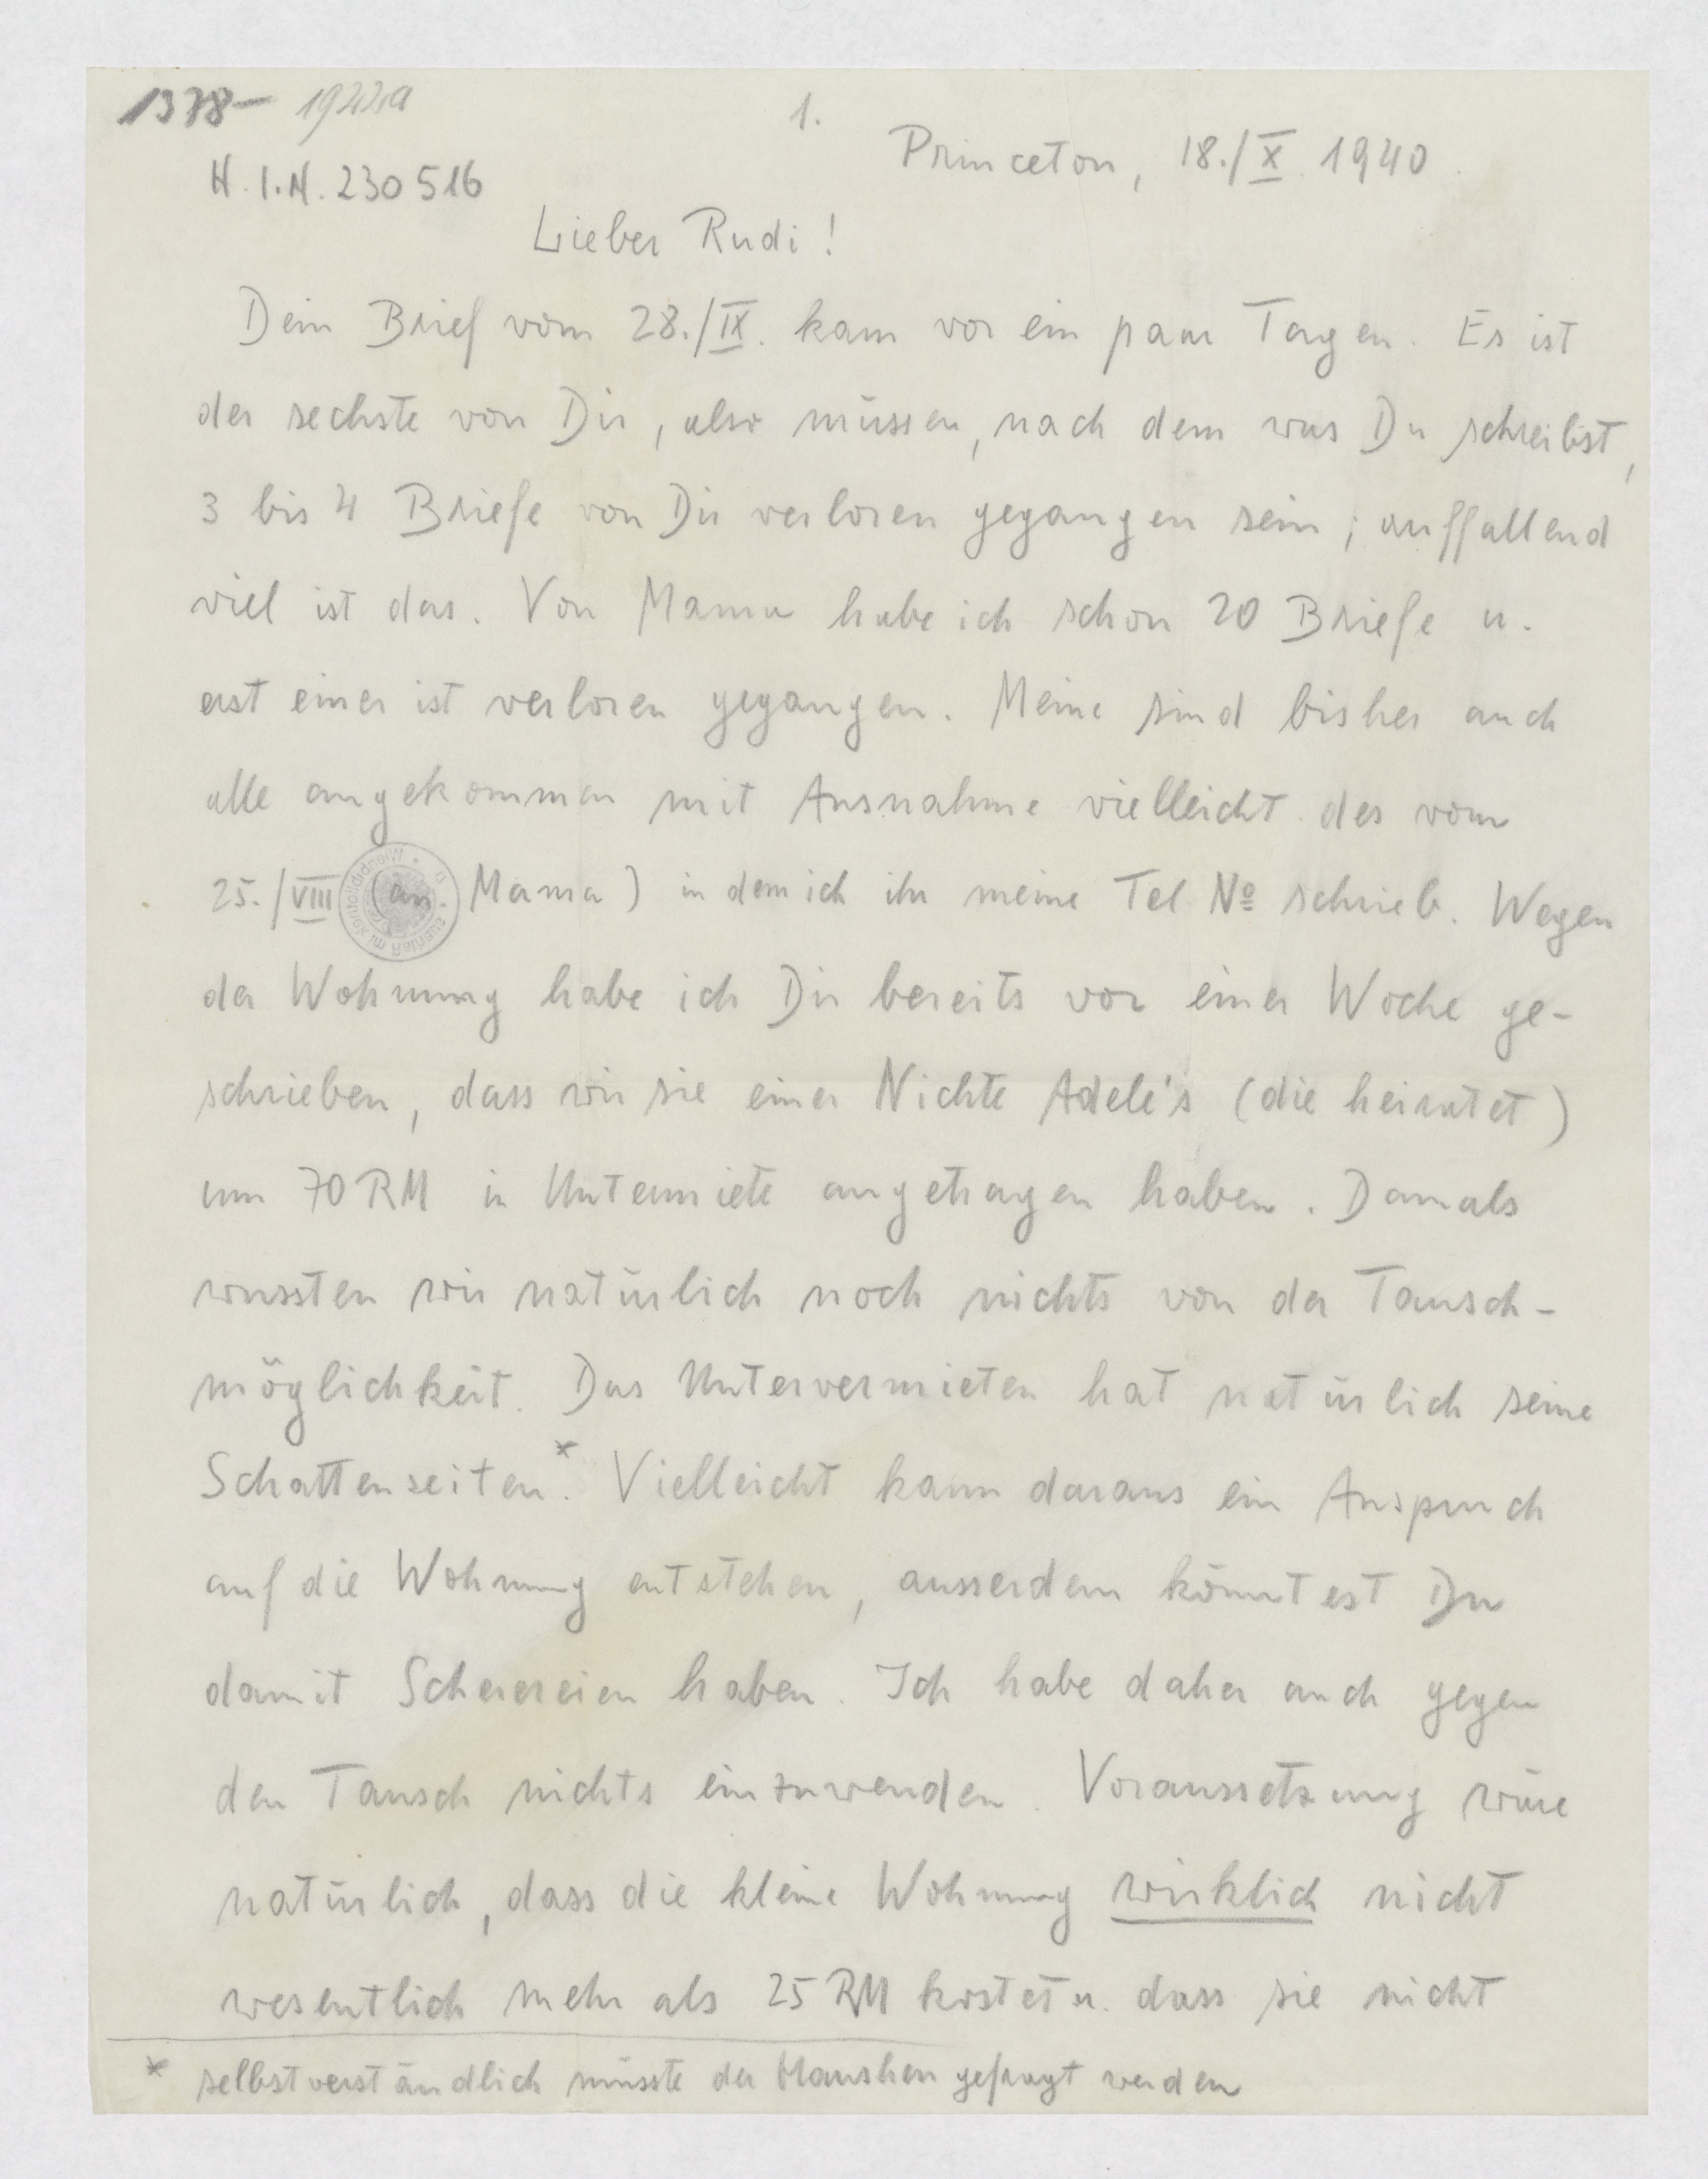 1378– 1922a
1.
Princeton, 18./X. 1940.
H.I.N. 230516
Lieber Rudi!
Dein Brief vom 28./IX. kam vor ein paar Tagen. Es ist
der sechste von Dir, also müssen, nach dem was Du schreibst,
3 bis 4 Briefe von Dir verloren gegangen sein; auffallend
viel ist das. Von Mama habe ich schon 20 Briefe u.
erst einer ist verloren gegangen. Meine sind bisher auch
alle angekommen mit Ausnahme vielleicht des vom
25./VIII (an Mama) in dem ich ihr meine Tel. Nº schrieb. Wegen
der Wohnung habe ich Dir bereits vor einer Woche ge-
schrieben, dass wir sie einer Nichte Adele's (die heiratet)
um 70 RM in Untermiete angetragen haben. Damals
wussten wir natürlich noch nichts von der Tausch-
möglichkeit. Das Untervermieten hat natürlich seine
Schattenseiten*. Vielleicht kann daraus ein Anspruch
auf die Wohnung entstehen, ausserdem könntest Du
damit Scherereien haben. Ich habe daher auch gegen
den Tausch nichts einzuwenden. Voraussetzung wäre
natürlich, dass die kleine Wohnung wirklich nicht
wesentlich mehr als 25 RM kostet u. dass sie nicht
* selbstverständlich müsste der Hausherr gefragt werden
Wienbibliothek im Rathaus